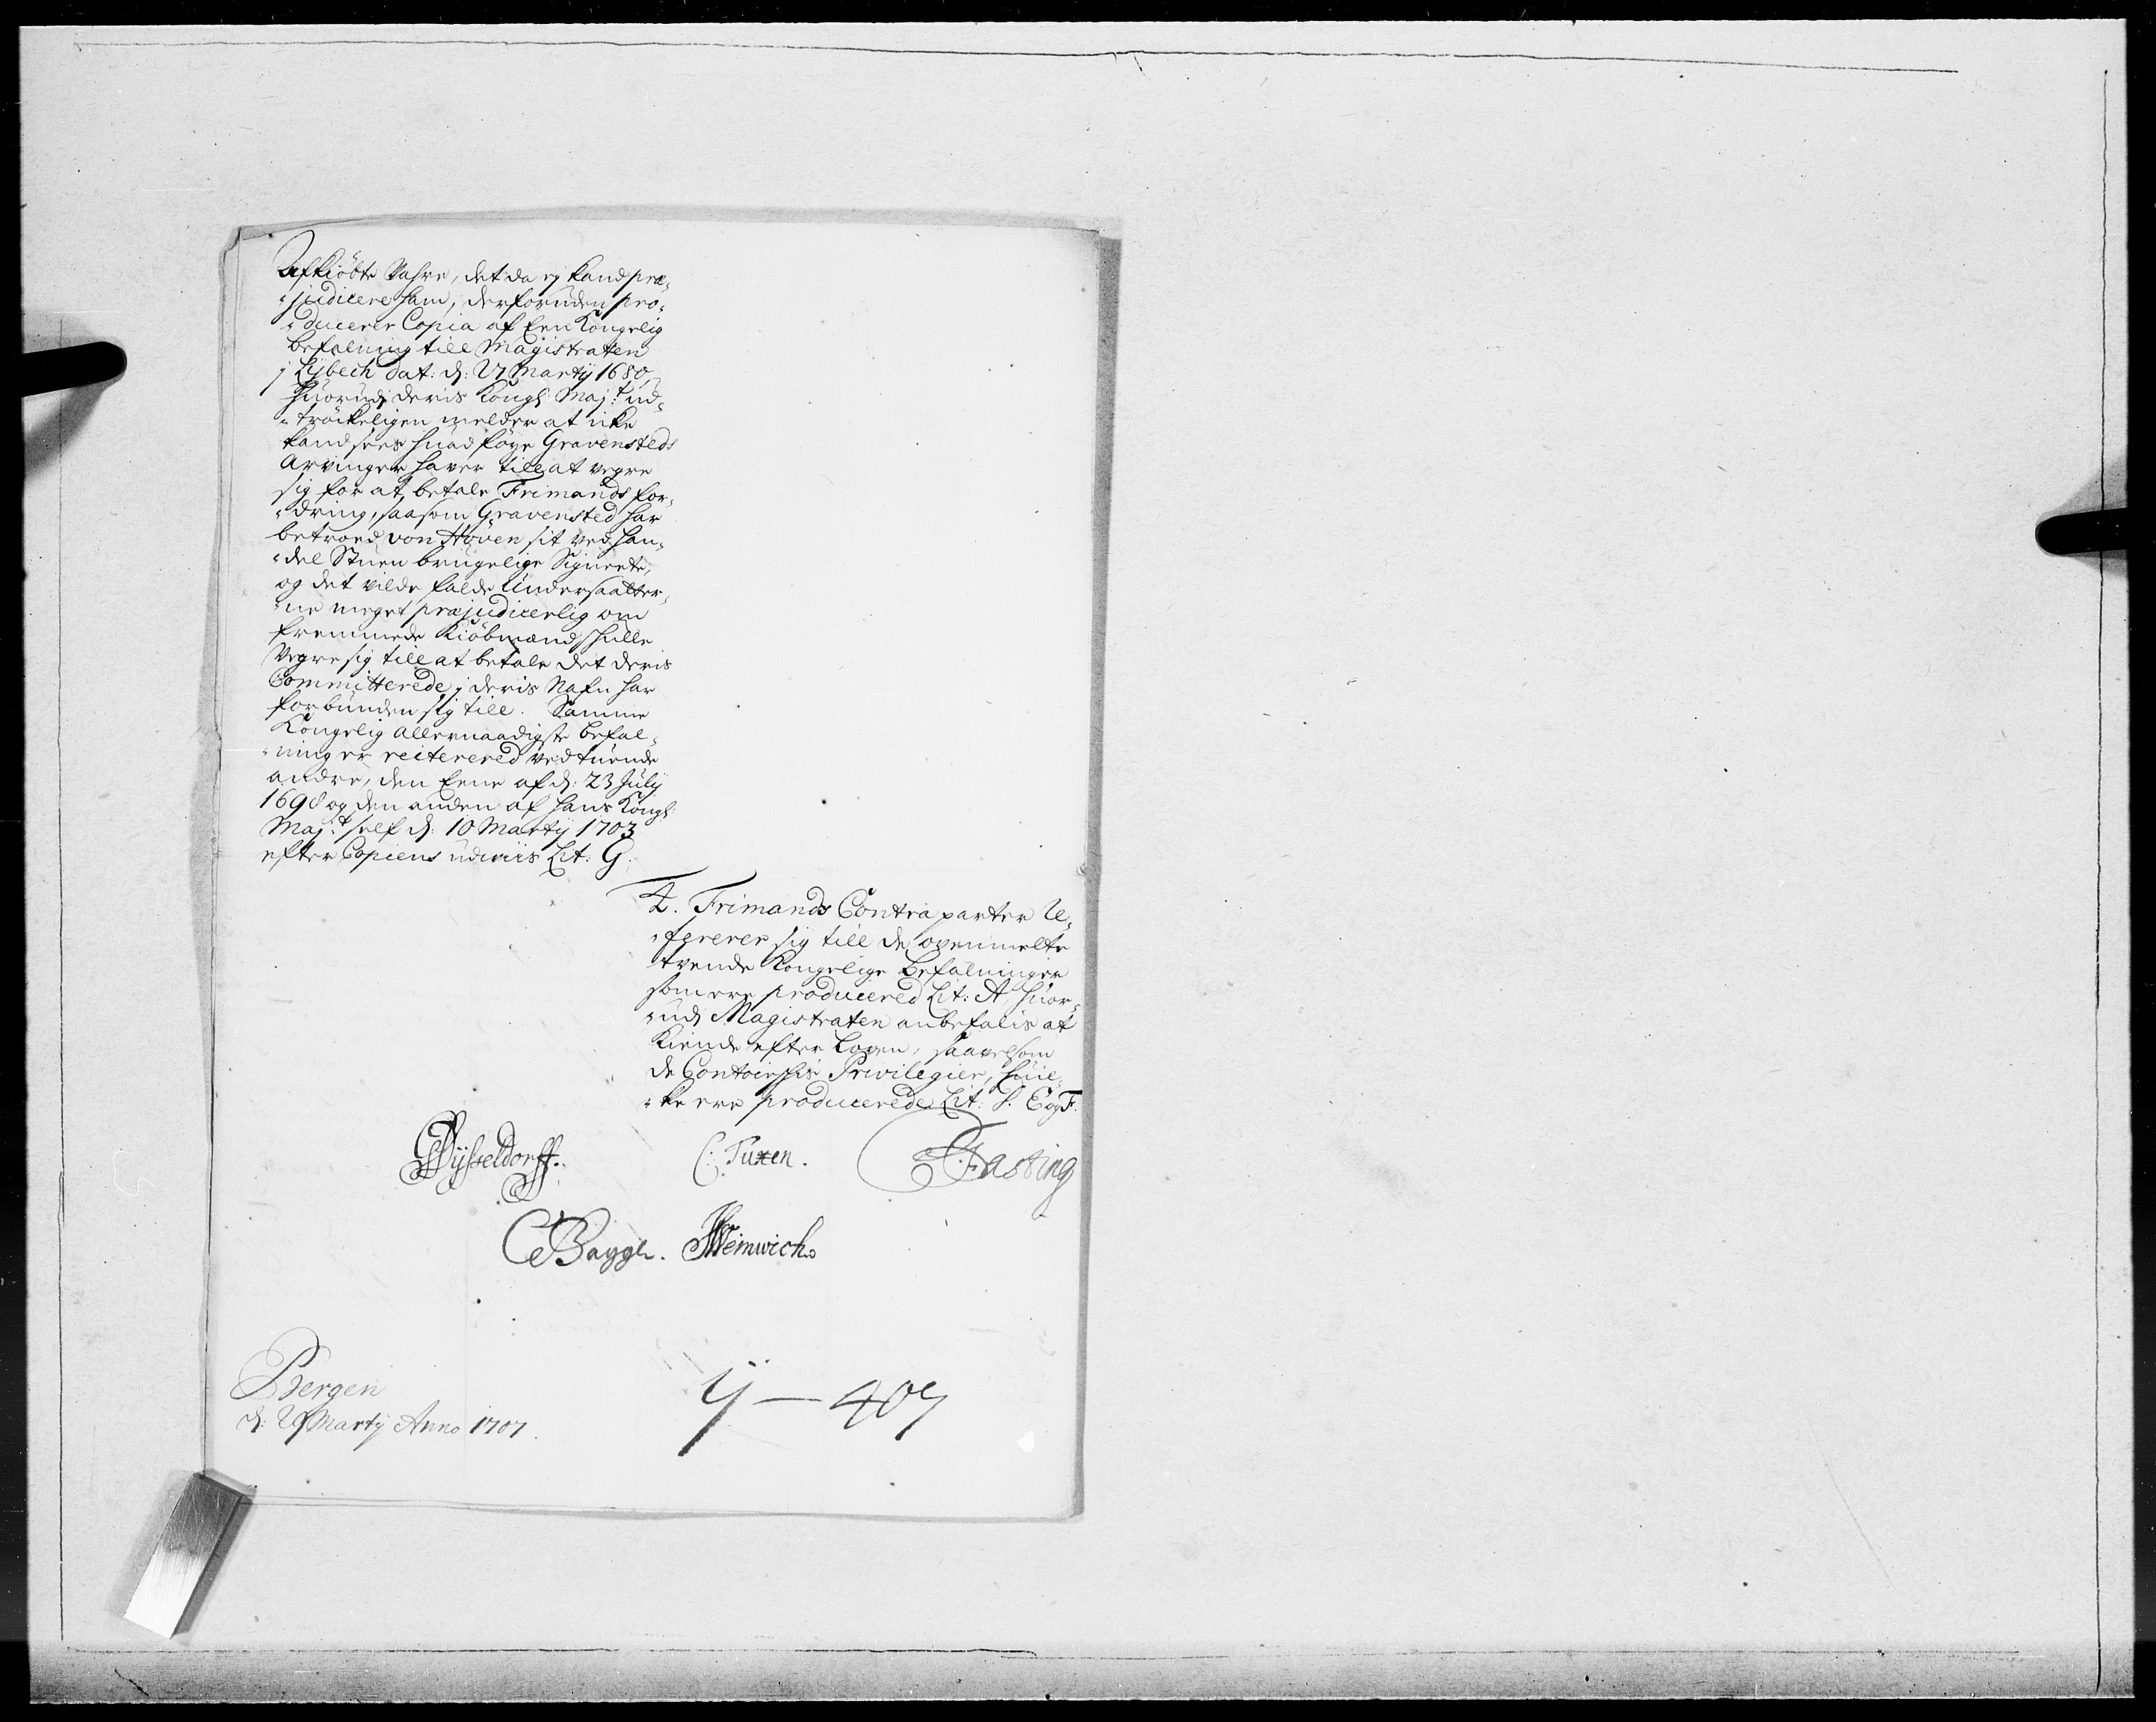 Afkiöbte Vahre, det da ej kand præ-
-judicere ham, derforuden pro-
-ducerer Copia af Een Kongelig
befalning till Magistraten
j Lÿbech dat: d: 27 Martij 1680,
huorudj deris Kongl: Maj:t ud-
-tröckeligen melder at icke
kand sees huad föye Gravensteds
Arvinger haver till at vegre
sig for at betale Frimands for-
-dring, saasom Gravensted har
betroed von Höven sit ved Han-
-del Stuen brugelige Signete,
og det vilde falde Undersaatter-
-ne meget præjudicerlig om
fremmede Kiöbmænd skulle
Vegre sig till at betale det deris
Committerede j deris Nafn har
forbunden sig till. Samme
Kongelig allernaadigste befal-
-ning er reiterered ved tuende
andre, den Eene af d: 23 Julij
1698 og den anden af hans Kongl:
Maj:t self d: 10 Martij 1703
efter Copiens udviis Lit: G.
4. Frimands Contraparter Re-
-fererer sig till de ovenmelte
tvende Kongelige befalninger
som ere producered Lit: A, huor-
-udj Magistraten anbefalis at
Kiende efter Loven, saavelsom
de Contoirske Privilegier, huil-
-ke ere producerede Lit: D. E og F.
Dÿsseldorff. C: Tuxen. Fasting
CBagge. Weinwich
Bergen
d: 29 Martij Anno 1707.
4 — 407